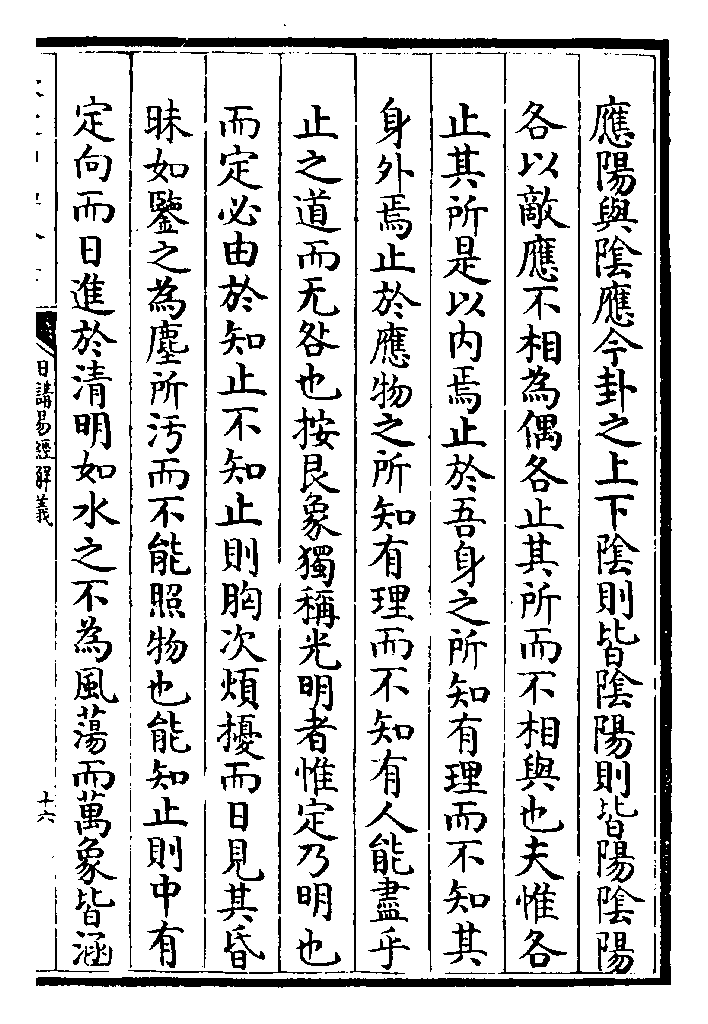 應陽與陰應今卦之上下陰則皆陰陽則皆陽陰陽
各以敵應不相為偶各止其所而不相與也夫惟各
止其所是以内焉止於吾身之所知有理而不知其
身外焉止於應物之所知有理而不知有人能盡乎
止之道而无咎也按艮象獨稱光明者惟定乃明也
而定必由於知止不知止則胸次煩擾而日見其昏
昧如鑒之為塵所汚而不能照物也能知止則中有
定向而日進於清明如水之不為風蕩而萬象皆涵
日講易經解義
十六